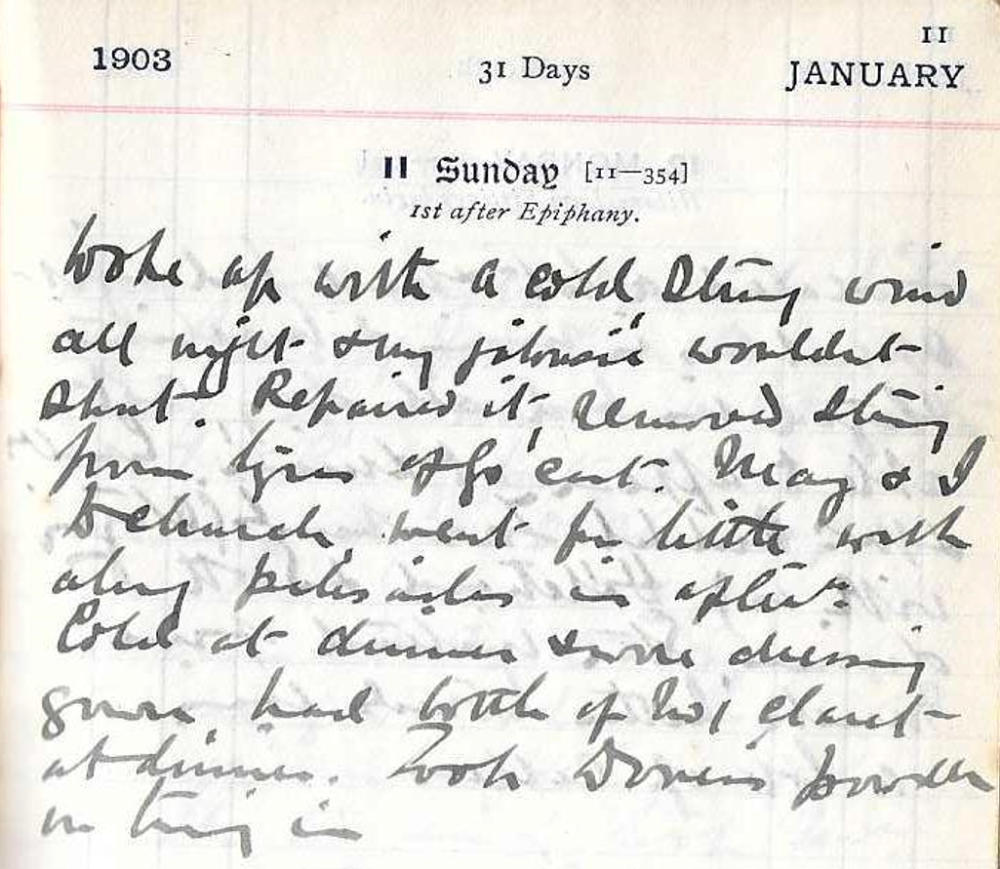 1903
31 Days
11
JANUARY
11 Sunday [11—354]
1st after Epiphany.
Woke up with a cold strong wind
all night & my jalousie wouldnt
shut. Repaired it, removed string
from tyres of go cart. May & I
to church, went for little walk
along in aftern:
Cold at dinner & wore dressing
gown, had bottle of No 1 claret
at dinner. Took Dovers powder
on turning in